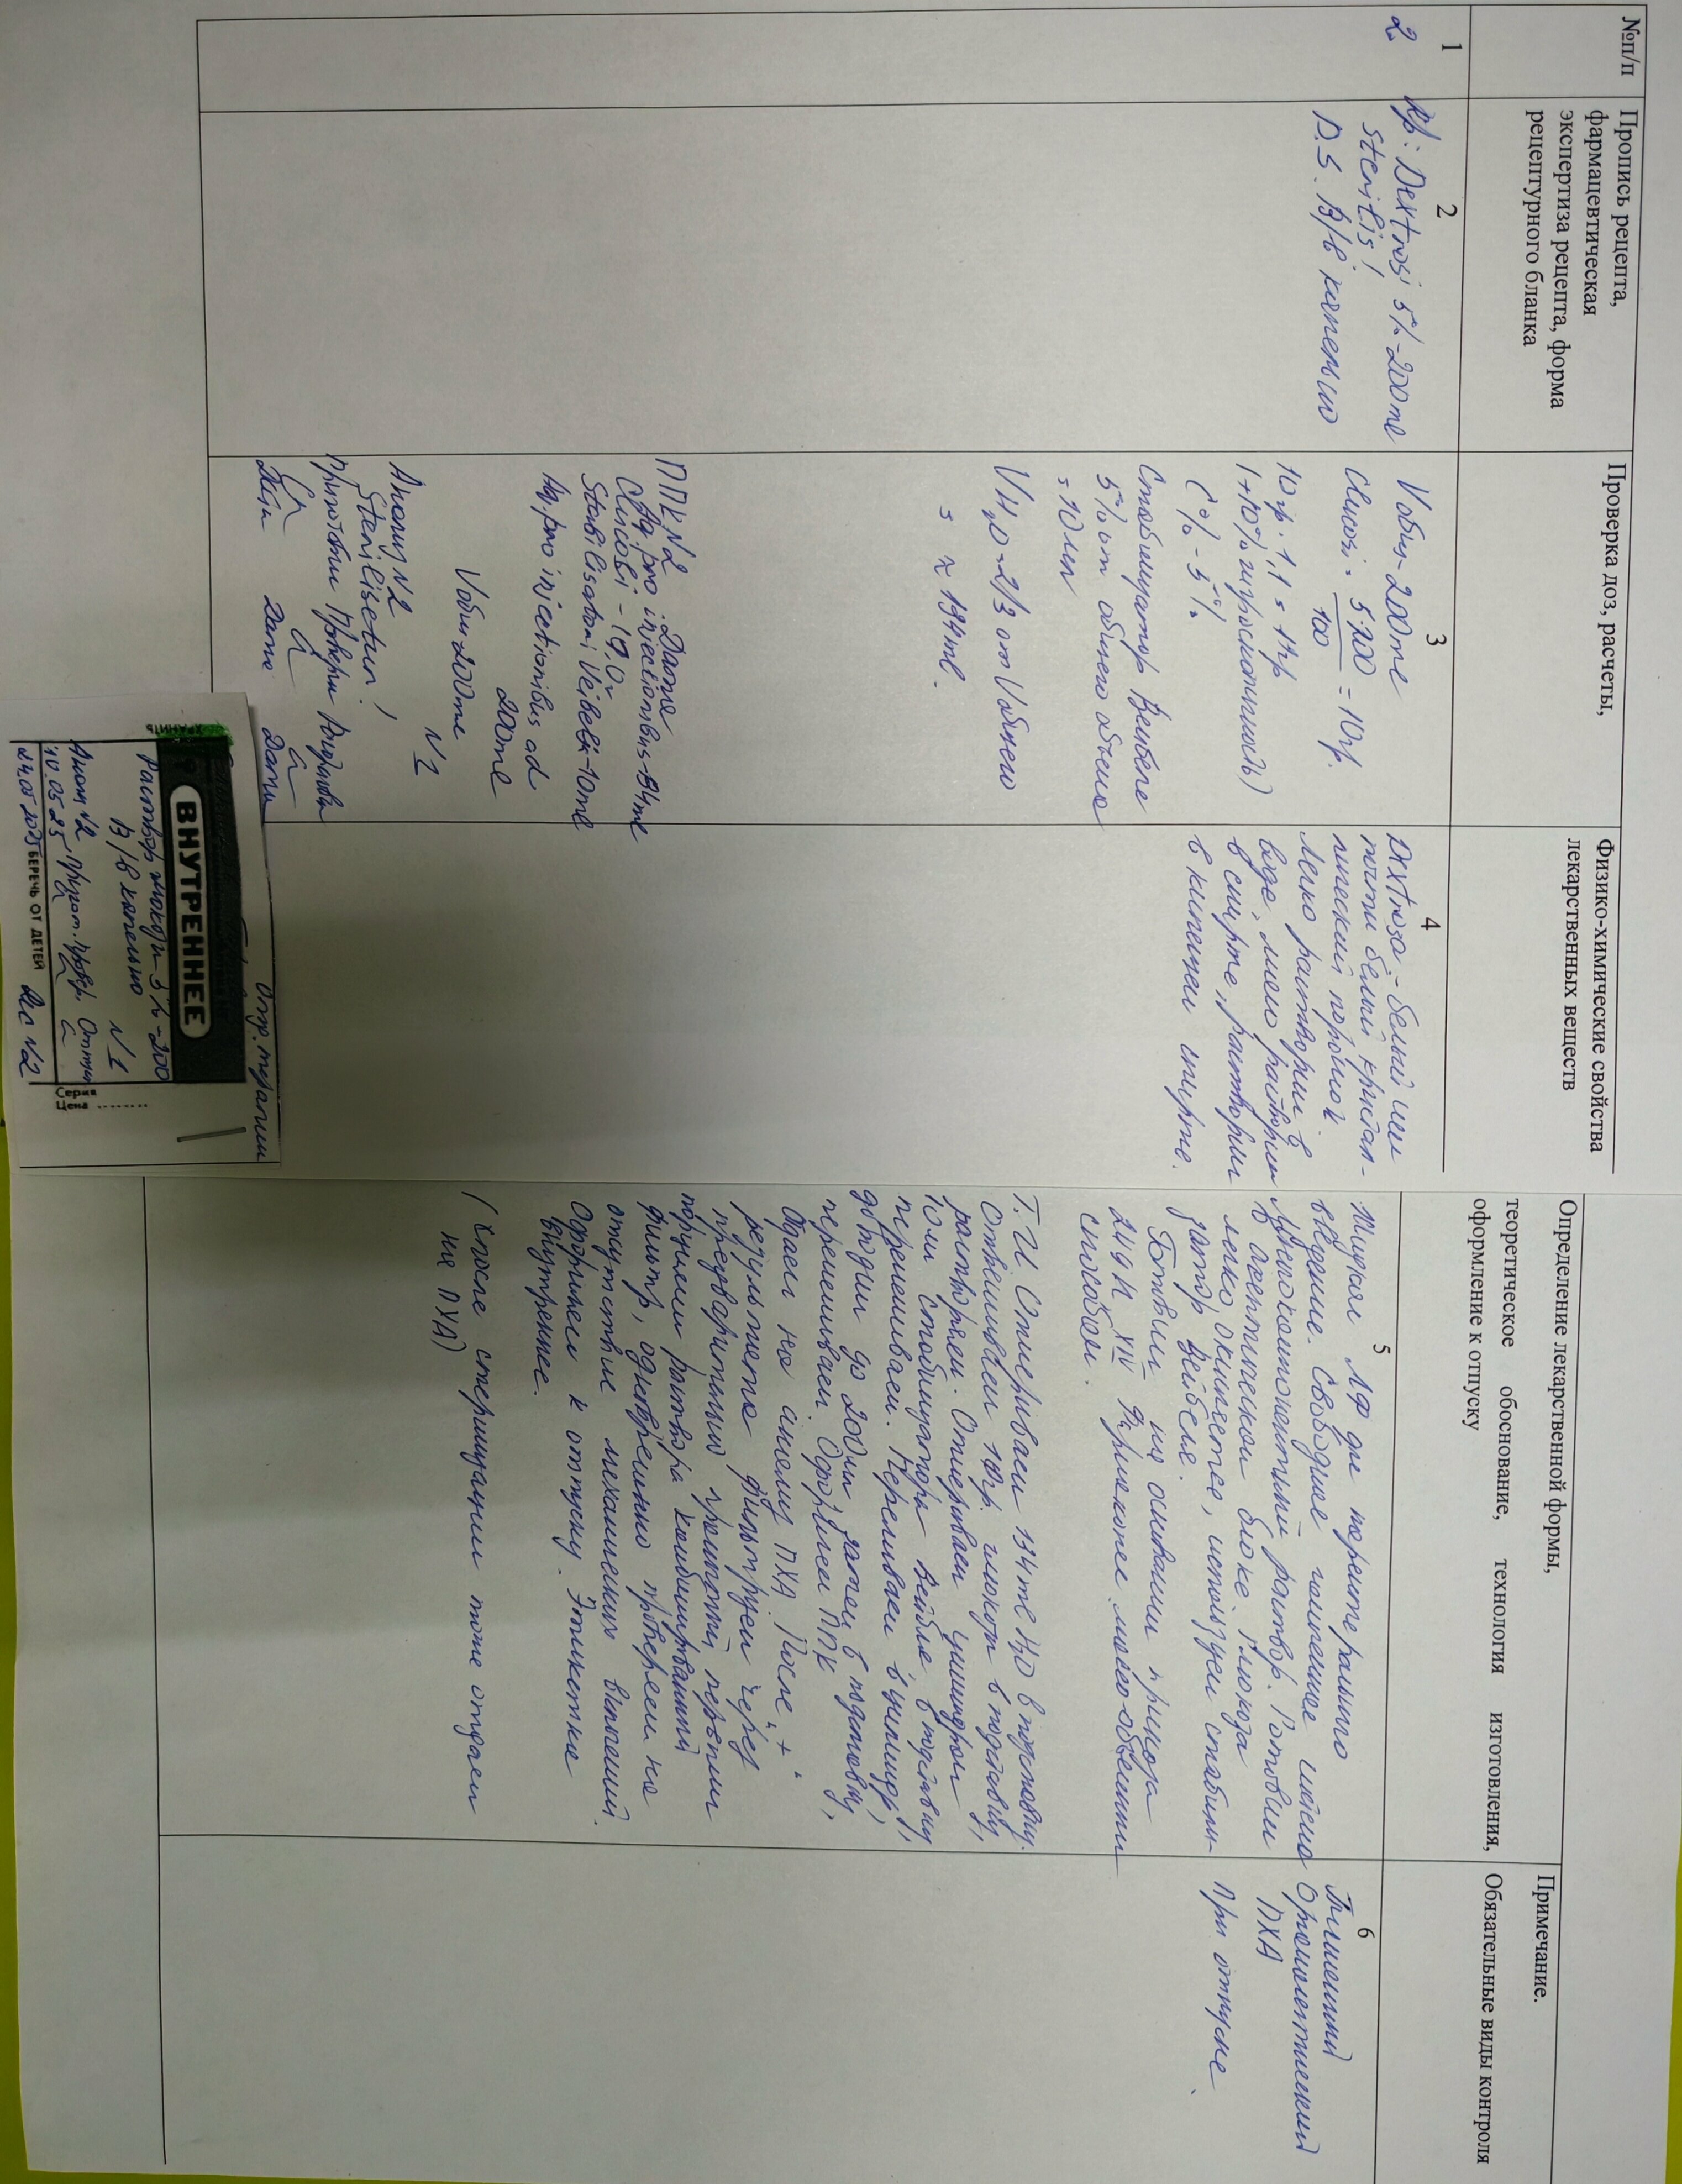 №п/п
Пропись рецепта,
фармацевтическая
экспертиза рецепта, форма
рецептурного бланка
Проверка доз, расчеты,
Физико-химические свойства
лекарственных веществ
Определение лекарственной формы,
теоретическое обоснование, технология изготовления,
оформление к отпуску
Примечание.
Обязательные виды контроля
1
2
3
4
5
6
2.
Rp: Dextrosi 5% - 200 ml
sterilis!
D.S. В/в капельно
Vобщ - 200 ml
Glucosi = 5·200
100
= 10 гр.
10 гр. · 1,1 = 11 гр
1 + 10% гигроскопичность)
C% - 5%
Стабилизатор Вейбеля
5% от общего объема
= 10 мл
V H₂O - 2/3 от Vобщего
= ≈ 134 ml.
ППК №2 Дата
Aq. pro injectionibus - 134 ml
Glucosi - 11,0
Stabilisatori Veibeli - 10 ml
Aq. pro injectionibus ad
200 ml
Vобщ 200 ml
№1
Анализ №2
Sterilisetur!
Приготовил Проверил
Дата Дата Дата
Dextroза - белый или
почти белый кристал-
лический порошок.
Легко растворим в
воде, мало растворим
в спирте, растворим
в кипящем спирте.
Жидкая ЛФ для парентерального
введение.
раствор. Готовим
в асептическом блоке. Глюкоза
легко окисляется, используем стабили-
затор Вейбеля.
Готовим на основании приказа
249 Н, XIV Ф, приказа массо-объемным
способом.
Т.И. Отмериваем 134 ml H₂O в подставку.
Отвешиваем 11 гр. глюкозы в подставку,
растворяем. Отмериваем цилиндром
10 мл стабилизатора Вейбеля в подставку
перемешиваем. Переливаем в цилиндр,
доводим до 200 мл, затем в подставку,
перемешиваем. Оформляем ППК,
отдаем на анализ ПХА. После "+"
результата фильтруем через
предварительно промытый первыми
порциями раствора комбинированный
фильтр, одновременно проверяем на
отсутствие механических включений.
Оформляем к отпуску. Этикетка
внутреннее.
(после стерилизации тоже отдаем
на ПХА)
Письменный
Органолептический
ПХА
При отпуске.
Отд. терапии
ВНУТРЕННЕЕ
Раствор глюкозы 5% - 200
В/в капельно
№1
Анализ №2 Пригот. Провер. Отпуст
10.05.25
24.05.2025 БЕРЕЧЬ ОТ ДЕТЕЙ
Серия
Цена ........